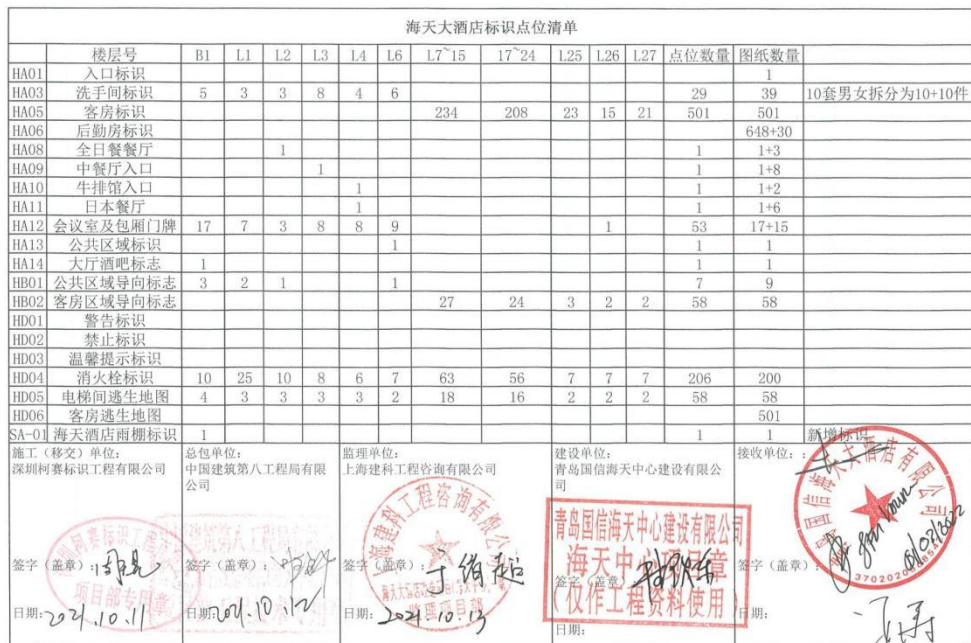 海天大酒店标识点位清单
楼层号 B1 L1 L2 L3 L4 L6 L7~15 17~24 L25 L26 L27 点位数量 图纸数量
HA01 入口标识 1
HA03 洗手间标识 5 3 3 8 4 6 29 39 10套男女拆分为10+10件
HA05 客房标识 234 208 23 15 21 501 501
HA06 后勤房标识 648+30
HA08 全日餐餐厅 1 1 1+3
HA09 中餐厅入口 1 1 1+8
HA10 牛排馆入口 1 1 1+2
HA11 日本餐厅 1 1 1+6
HA12 会议室及包厢门牌 17 7 3 8 8 9 1 53 17+15
HA13 公共区域标识 1 1 1
HA14 大厅酒吧标志 1 1 1
HB01 公共区域导向标志 3 2 1 1 7 9
HB02 客房区域导向标志 27 24 3 2 2 58 58
HD01 警告标识
HD02 禁止标识
HD03 温馨提示标识
HD04 消火栓标识 10 25 10 8 6 7 63 56 7 7 7 206 200
HD05 电梯间逃生地图 4 3 3 3 3 2 18 16 2 2 2 58 58
HD06 客房逃生地图 501
SA-01 海天酒店雨棚标识 1 1 1 新增标识
施工（移交）单位：
深圳柯赛标识工程有限公司
总包单位：
中国建筑第八工程局有限
公司
监理单位：
上海建科工程咨询有限公司
建设单位：
青岛国信海天中心建设有限公
司
接收单位：:
签字（盖章）:
日期:2021.10.11
项目部专用章
签字（盖章）:
日期:2021.10.12
上海建科工程咨询有限公司
签字（盖章）:
监理项目部
日期: 2021.10.13
青岛国信海天中心建设有限公司
签字（盖章）
（仅作工程资料使用）
日期:
签字（盖章）:
日期: